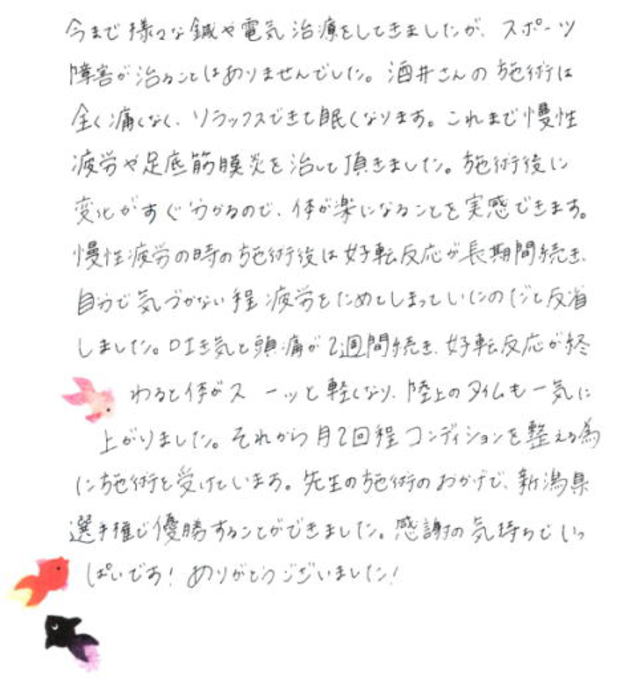 今まで様々な鍼や電気治療をしてきましたが、スポーツ
障害が治ることはありませんでした。酒井さんの施術は
全く痛くなく、リラックスできて眠くなります。これまで慢性
疲労や足底筋膜炎を治して頂きました。施術後に
変化がすぐ分かるので、体が楽になることを実感できます。
慢性疲労の時の施術後は好転反応が長期間続き、
自分で気づかない程疲労をためてしまっていたのだと反省
しました。吐き気と頭痛が2週間続き、好転反応が終
わると体がスーッと軽くなり、陸上のタイムも一気に
上がりました。それから月2回程コンディションを整える為
に施術を受けています。先生の施術のおかげで、新潟県
選手権で優勝することができました。感謝の気持ちでいっ
ぱいです!ありがとうございました!